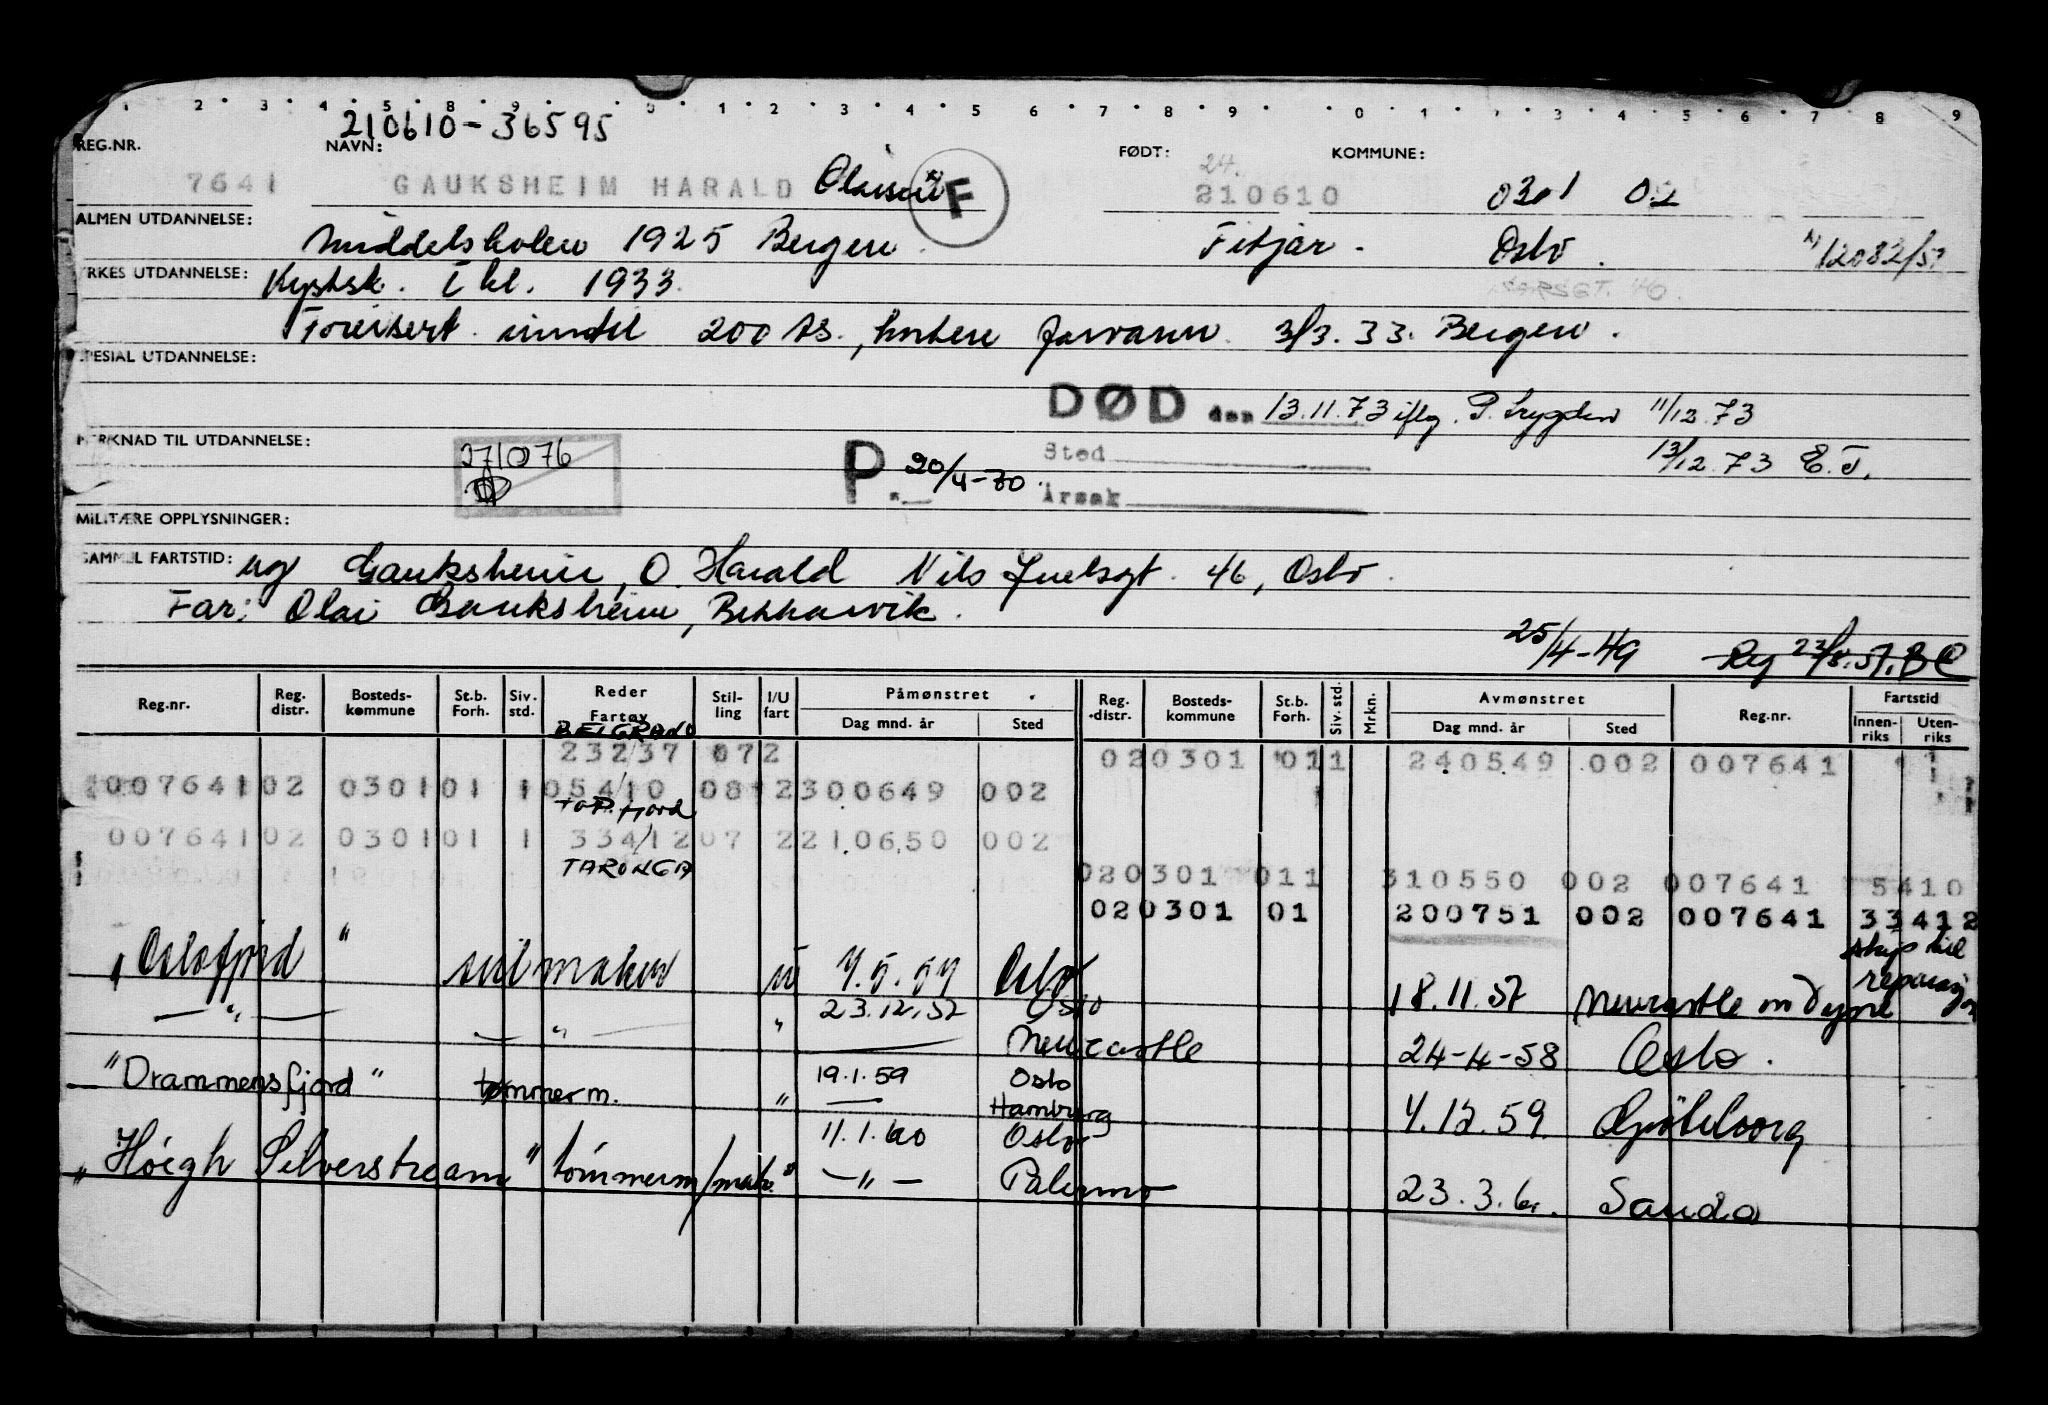 1 2 3 4 5 8 9 0 1 2 3 4 5 6 7 8 9 0 1 2 3 4 5 6 7 8 9
210610-36595
REG.NR. NAVN: FØDT: KOMMUNE:
24.
7641 GAUKSHEIM HARALD x) F 210610 0301 02
ALMEN UTDANNELSE: Middelskolen 1925 Bergen Fitjar. Oslo. x) 12082/57
YRKES UTDANNELSE: Kystsk. I kl. 1933.
Forevisert inntil 200 ts., kortere farvann 3/3.33. Bergen.
SPESIAL UTDANNELSE:
DØD den 13.11.73 iflg. P. trygden 11/12.73
MERKNAD TIL UTDANNELSE: 271076 P 20/4-70 Sted 13/12.73 E.T.
Årsak
MILITÆRE OPPLYSNINGER:
SAMMEL FARTSTID: ug Gauksheim, O. Harald Nils Juelsgt. 46, Oslo.
Far: Olai Gauksheim, Bekkarvik.
25/4-49 Reg 23/8.57. BC
Reg.nr. Reg. distr. Bosteds-kommune St.b. Forh. Siv. std. Reder Fartøy Stil-ling I/U fart Påmønstret Dag mnd. år Sted Reg. distr. Bosteds-kommune St.b. Forh. Siv. std. Mrkn. Avmønstret Dag mnd. år Sted Reg.nr. Fartstid Innen-riks Uten-riks
BELGRANO
232/37 072 020301 011 240549 002 007641
007641 02 0301 01 1 054/10 08 2 300649 002
TOP. fjord
007641 02 0301 01 1 334/12 07 2 210650 002
TARONGA 020301 011 310550 002 007641 5410
020301 01 200751 002 007641 33412
"Oslofjord" seilmaker u 7.5.57 Oslo 18.11.57 Newcastle on Tyne skip til reparasjon
— " — — " — " 23.12.57 Oslo
Newcastle 24-4-58 Oslo.
"Drammensfjord" tømmerm. " 19.1.59 Oslo
Hamburg 4.12.59. Gjøteborg
"Höegh Silverstream" tømmerm/matr. " 11.1.60 Oslo
— " — Palermo 23.3.61. Sauda